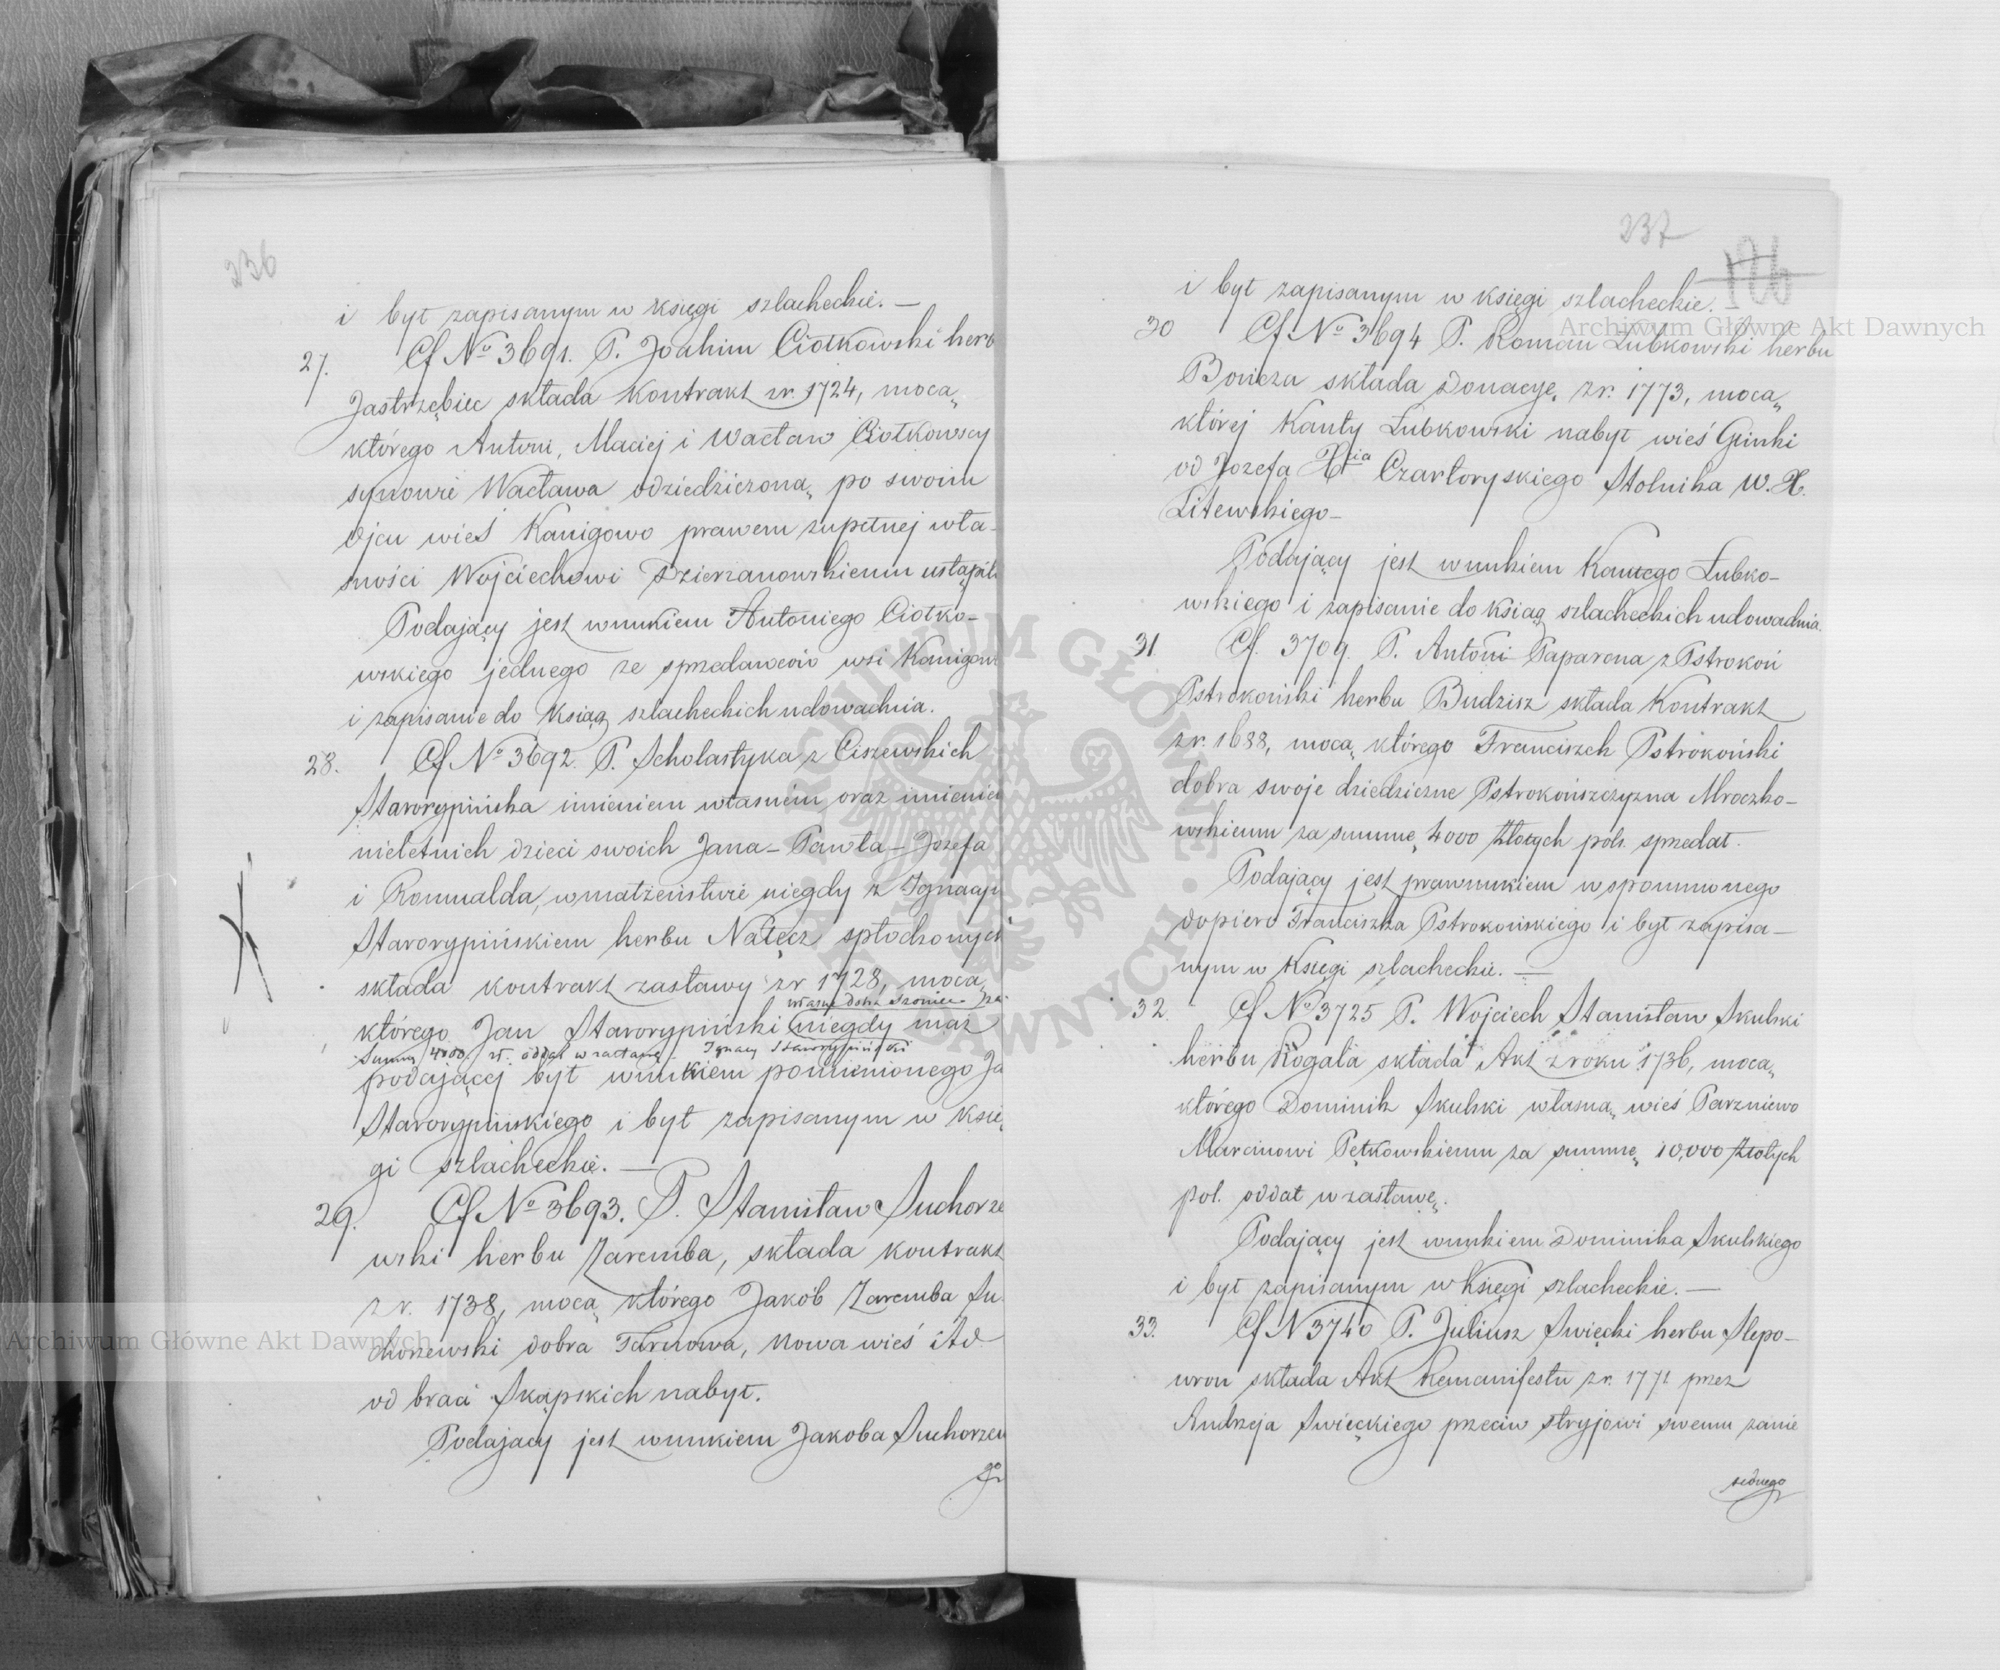 236
i być zapisanym w księgi szlacheckie. —
27. Cf No 3691. P. Joahim Ciotkowski herb
Jastrzębiec składa kontrakt zr. 1724, mocą
którego Antoni, Maciej i Wacław Ciotkowscy
synowie Wacława odziedziczoną po swoim
Ojcu wieś Kanigowo prawem zupełnej wła-
sności Wojciechowi Dzierzanowskiemu ustąpili
Podający jest wnukiem Antoniego Ciotko-
wskiego jednego ze sprzedawców wsi Kanigowo
i zapisanie do Ksiąg szlacheckich udowadnia.
28. Cf No 3692. P. Scholastyka z Ciszewskich
Starorypińska imieniem własnem oraz imieniem
nieletnich dzieci swoich Jana – Pawła – Józefa
i Romualda, w małżeństwie niegdy z Ignacym
Starorypińskiem herbu Nałęcz spłodzonych
składa kontrakt zastawy zr 1728, mocą
własne dobra za
którego Jan Starorypiński niegdy mąż
Summę 4000 zł. oddał w zastawę. Ignacy Starorypiński
podającej był wnukiem pomienionego Ja
Starorypińskiego i był zapisanym w Księ-
gi szlacheckie. —
29. Cf No 3693. P. Stanisław Suchorze
wski herbu Zaremba, składa kontrakt
z r. 1738, mocą którego Jakób Zaremba Su-
chorzewski dobra Tarnowa, Nowa wieś itd
od braci Skąpskich nabył.
Podający jest wnukiem Jakoba Suchorzew
go
237
126
i był zapisanym w księgi szlacheckie.
30 Cf No 3694 P. Roman Łubkowski herbu
Bończa składa Donacyę zr. 1773, mocą
której Kanty Łubkowski nabył wieś Gūnki
od Jozefa Xcia Czartoryskiego Stolnika W. X.
Litewskiego –
Podający jest wnukiem Kantego Łubko-
wskiego i zapisanie do ksiąg szlacheckich udowadnia.
31 Cf. 3709. P. Antoni Paparona z Pstrokoń
Pstrokoński herbu Budzisz składa Kontrakt
zr. 1688, mocą którego Franciszek Pstrokoński
dobra swoje dziedziczne Pstrokońszczyzna Mroczko-
wskiemu za summę 4000 złotych pols. sprzedał.
Podający jest prawnukiem wspomnionego
dopiero Franciszka Pstrokońskiego i był zapisa-
nym w Księgi szlacheckie. —
32. Cf No 3725 P. Wojciech Stanisław Skulski
herbu Rogala składa Akt z roku 1736, mocą
którego Dominik Skulski własną wieś Parzniewo
Marcinowi Pętkowskiemu za summę 10,000 złotych
pol. oddał w zastawę.
Podający jest wnukiem Dominika Skulskiego
i był zapisanym w Księgi szlacheckie. —
33. Cf N 3740 P. Juliusz Swięcki herbu Slepo-
wron składa Akt Remanifestu zr. 1771 przez
Andrzeja Swięckiego przeciw stryjowi swemu zanie
sionego
Archiwum Główne Akt Dawnych
Archiwum Główne Akt Dawnych
ARCHIWUM GŁÓWNE · AKT DAWNYCH ·